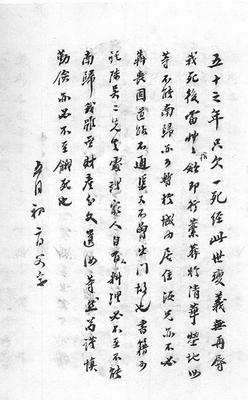 五十之年只欠一死經此世變義無再辱
我死後當草草棺斂即行槀葬於清華塋地汝
等不能南歸亦可暫於城內居住汝兄亦不必
奔喪因道路不通渠又不曾出門故也書籍可
託陳吳二先生處理家人自有人料理必不至不能
南歸我雖無財產分文遺汝等然苟謹慎
勤儉亦必不至餓死也
五月初二日父字